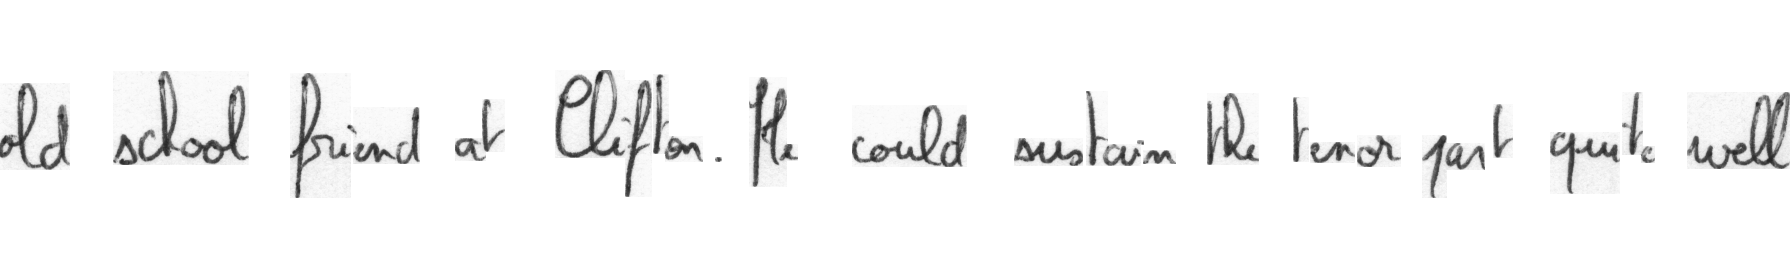 old school friend at Clifton. He could sustain the tenor part quite well